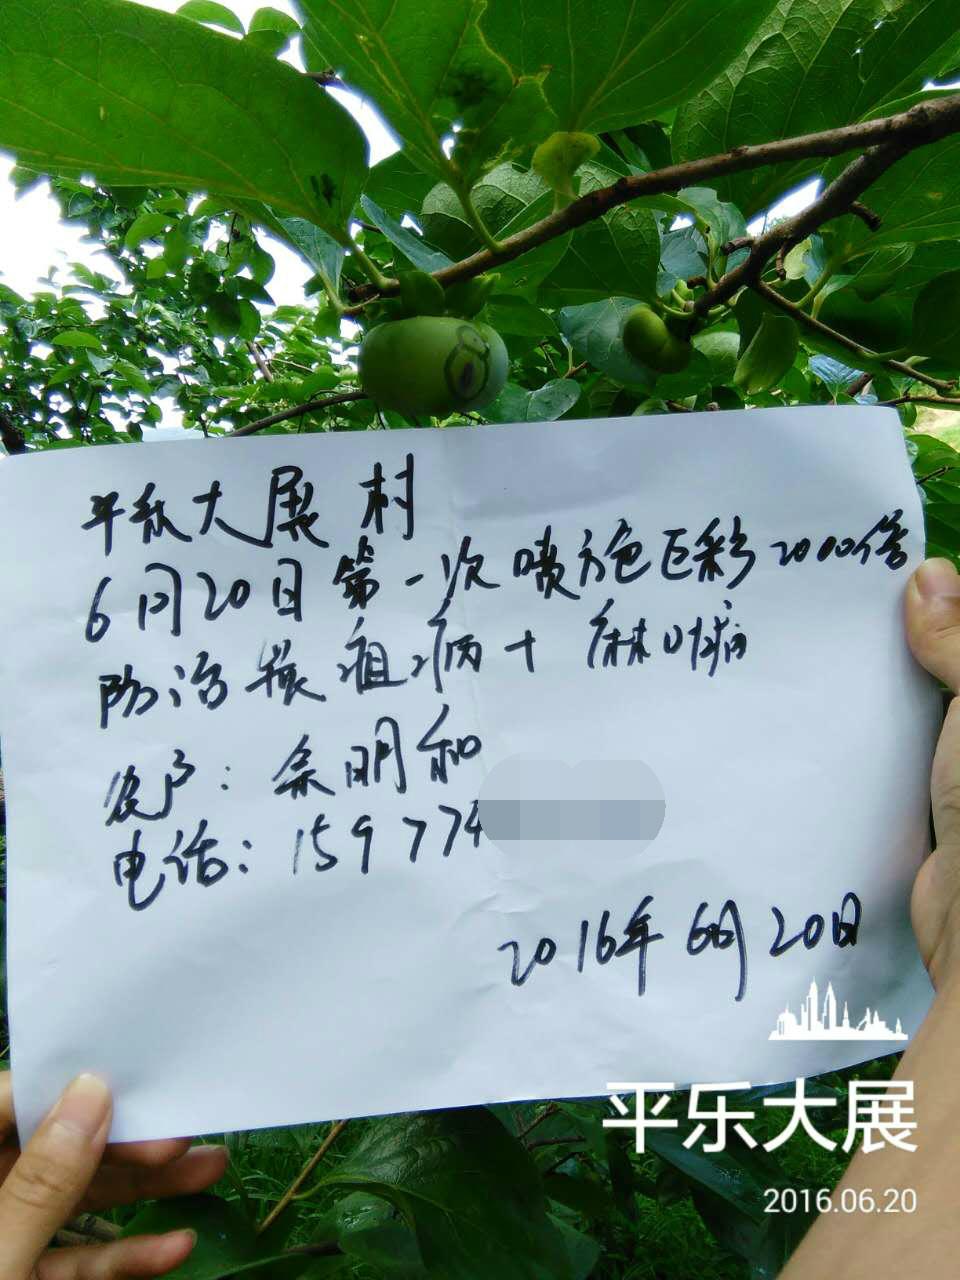 平乐大展村
6月20日第一次喷施色巨彩2000倍
防治炭疽病+麻叶病
农户：余明和
电话：159774
2016年6月20日
平乐大展
2016.06.20